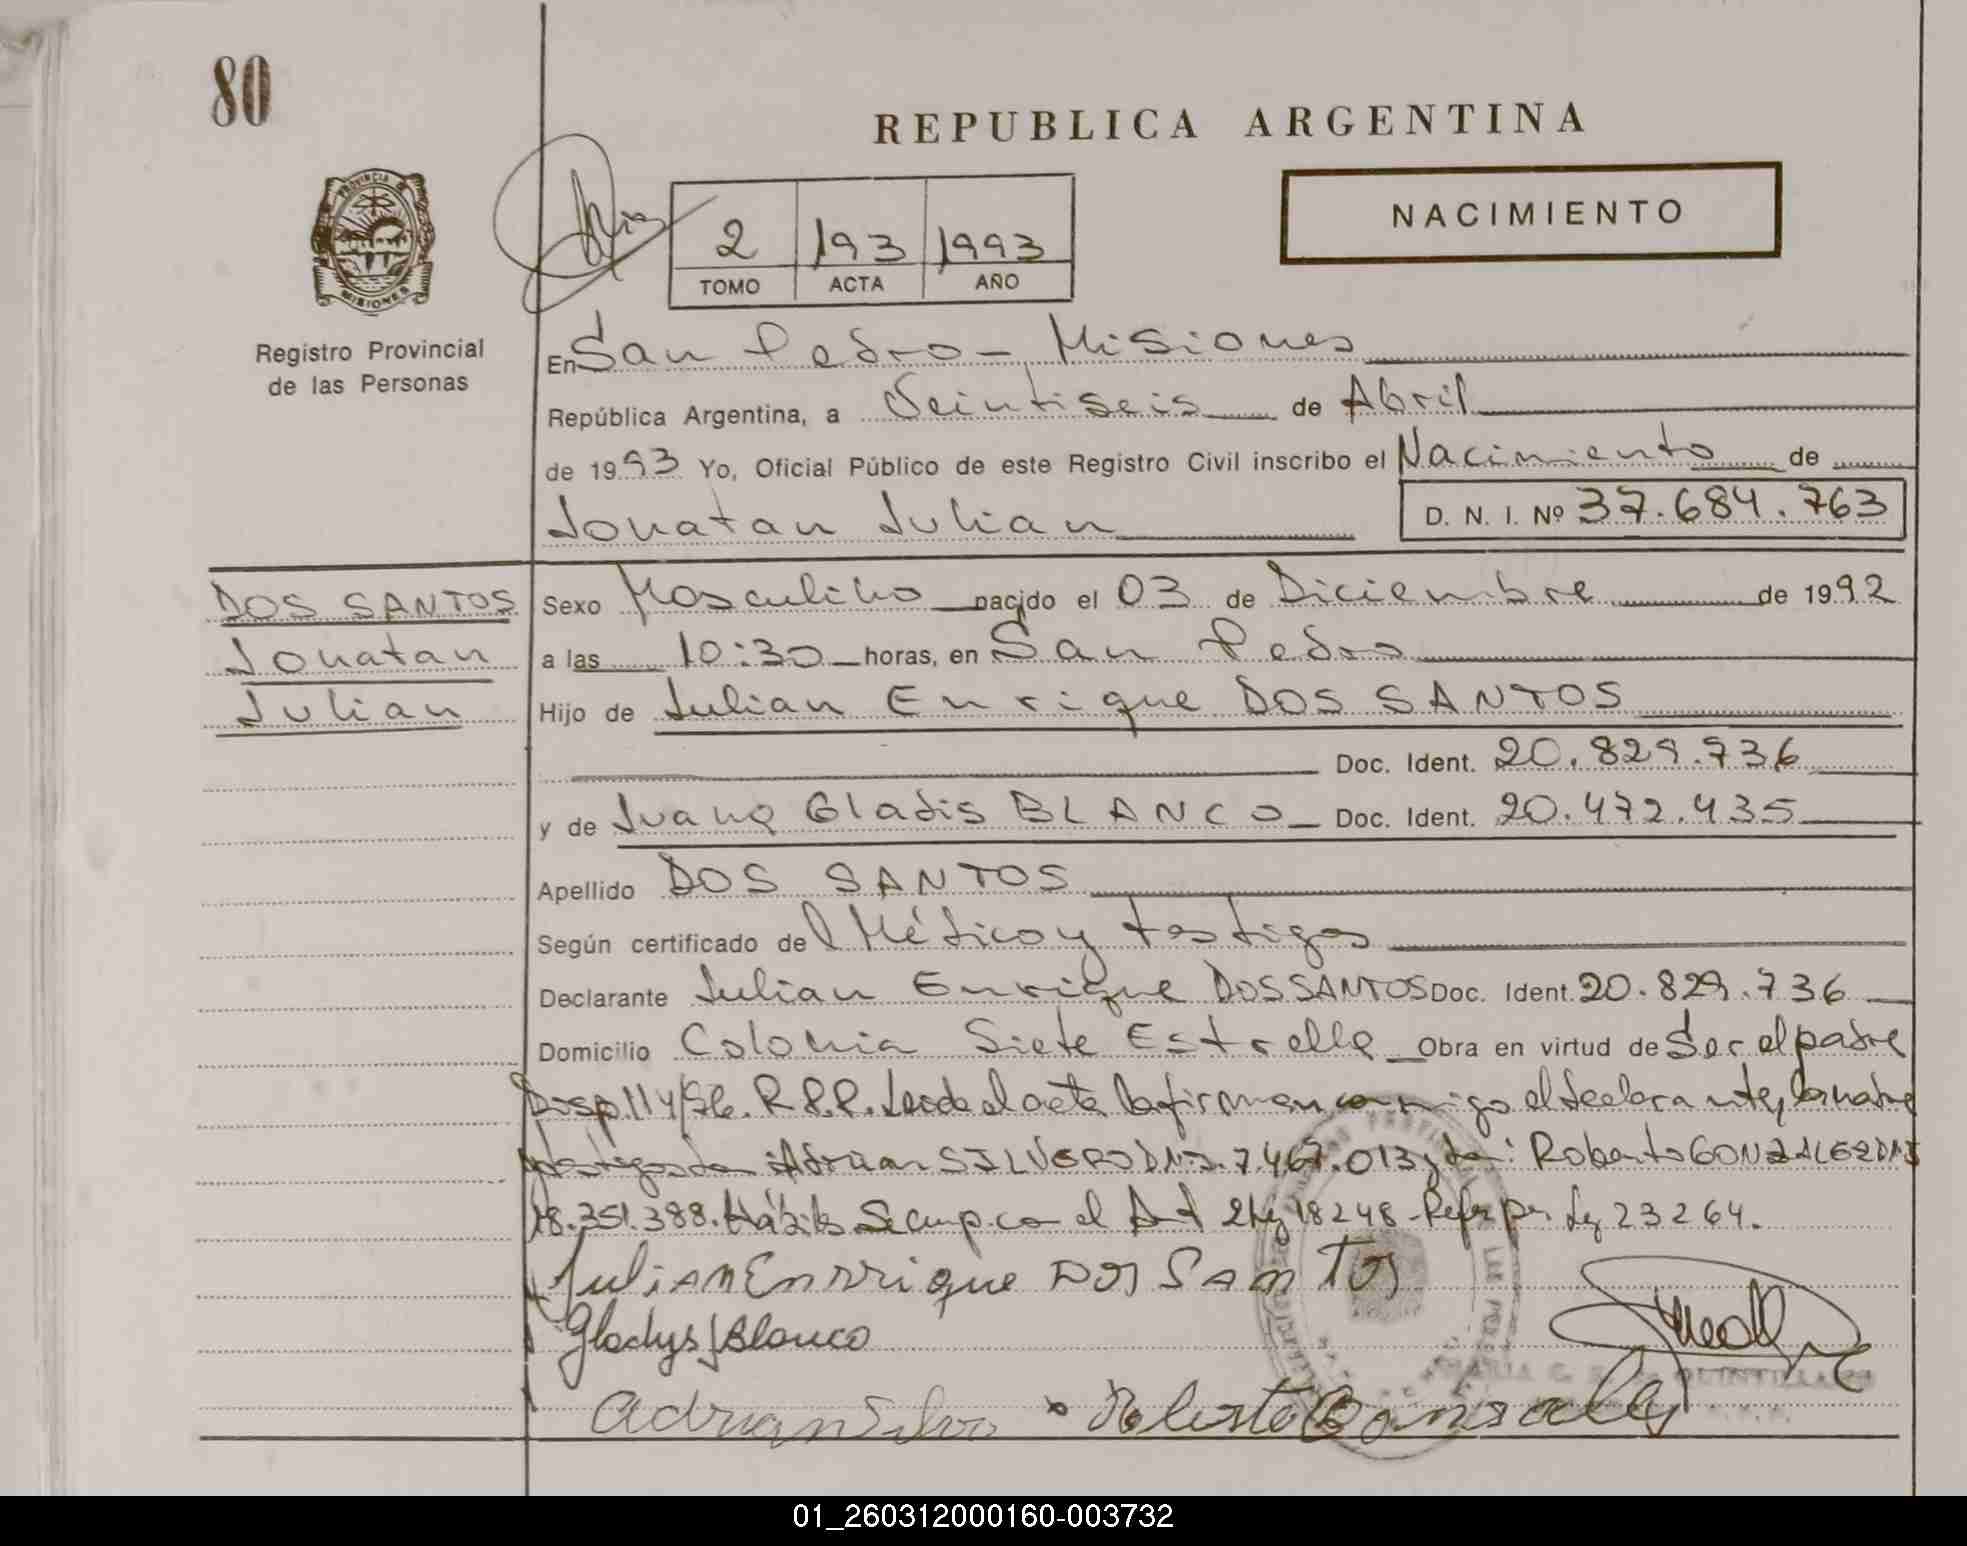 80
REPUBLICA ARGENTINA
PROVINCIA DE
MISIONES
NACIMIENTO
2 193 1993
TOMO ACTA AÑO
Registro Provincial
de las Personas
En San Pedro - Misiones
República Argentina, a Veintiseis de Abril
de 1993 Yo, Oficial Público de este Registro Civil inscribo el Nacimiento de
Jonatan Julian D. N. I. Nº 37.684.763
DOS SANTOS
Jonatan
Julian
Sexo Masculino nacido el 03 de Diciembre de 1992
a las 10:30 horas, en San Pedro
Hijo de Julian Enrique DOS SANTOS
Doc. Ident. 20.829.736
y de Juana Gladis BLANCO Doc. Ident. 20.472.435
Apellido DOS SANTOS
Según certificado del Médico y testigos
Declarante Julian Enrique DOS SANTOS Doc. Ident. 20.829.736
Domicilio Colonia Siete Estrella Obra en virtud de Ser el padre
Disp. 114/86. R.P.P. Leida el acta la firman conmigo el declarante, la madre
Adrian SILVERO DNI. 7.467.013 y Roberto GONZALEZ DNI
18.351.388. Se cump. con el Art 2 Ley 18248 - por Ley 23264.
Julian Enrrique DOS SANTOS
Gladys J Blanco
Adrian Silvero Roberto Gonsales
01_260312000160-003732